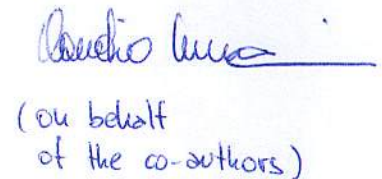 Claudio
(on behalf
of the co-authors)